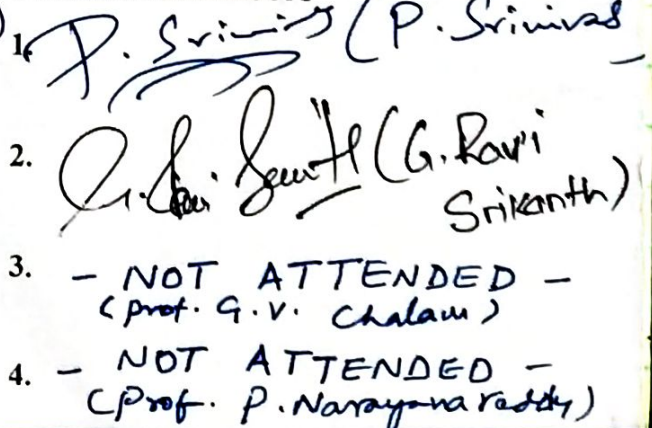 1. P. Srinivas (P. Srinivas
2. G. Ravi Srikanth (G. Ravi
Srikanth)
3. - NOT ATTENDED -
(Prof. G.V. Chalam)
4. - NOT ATTENDED -
(Prof. P. Narayana reddy)